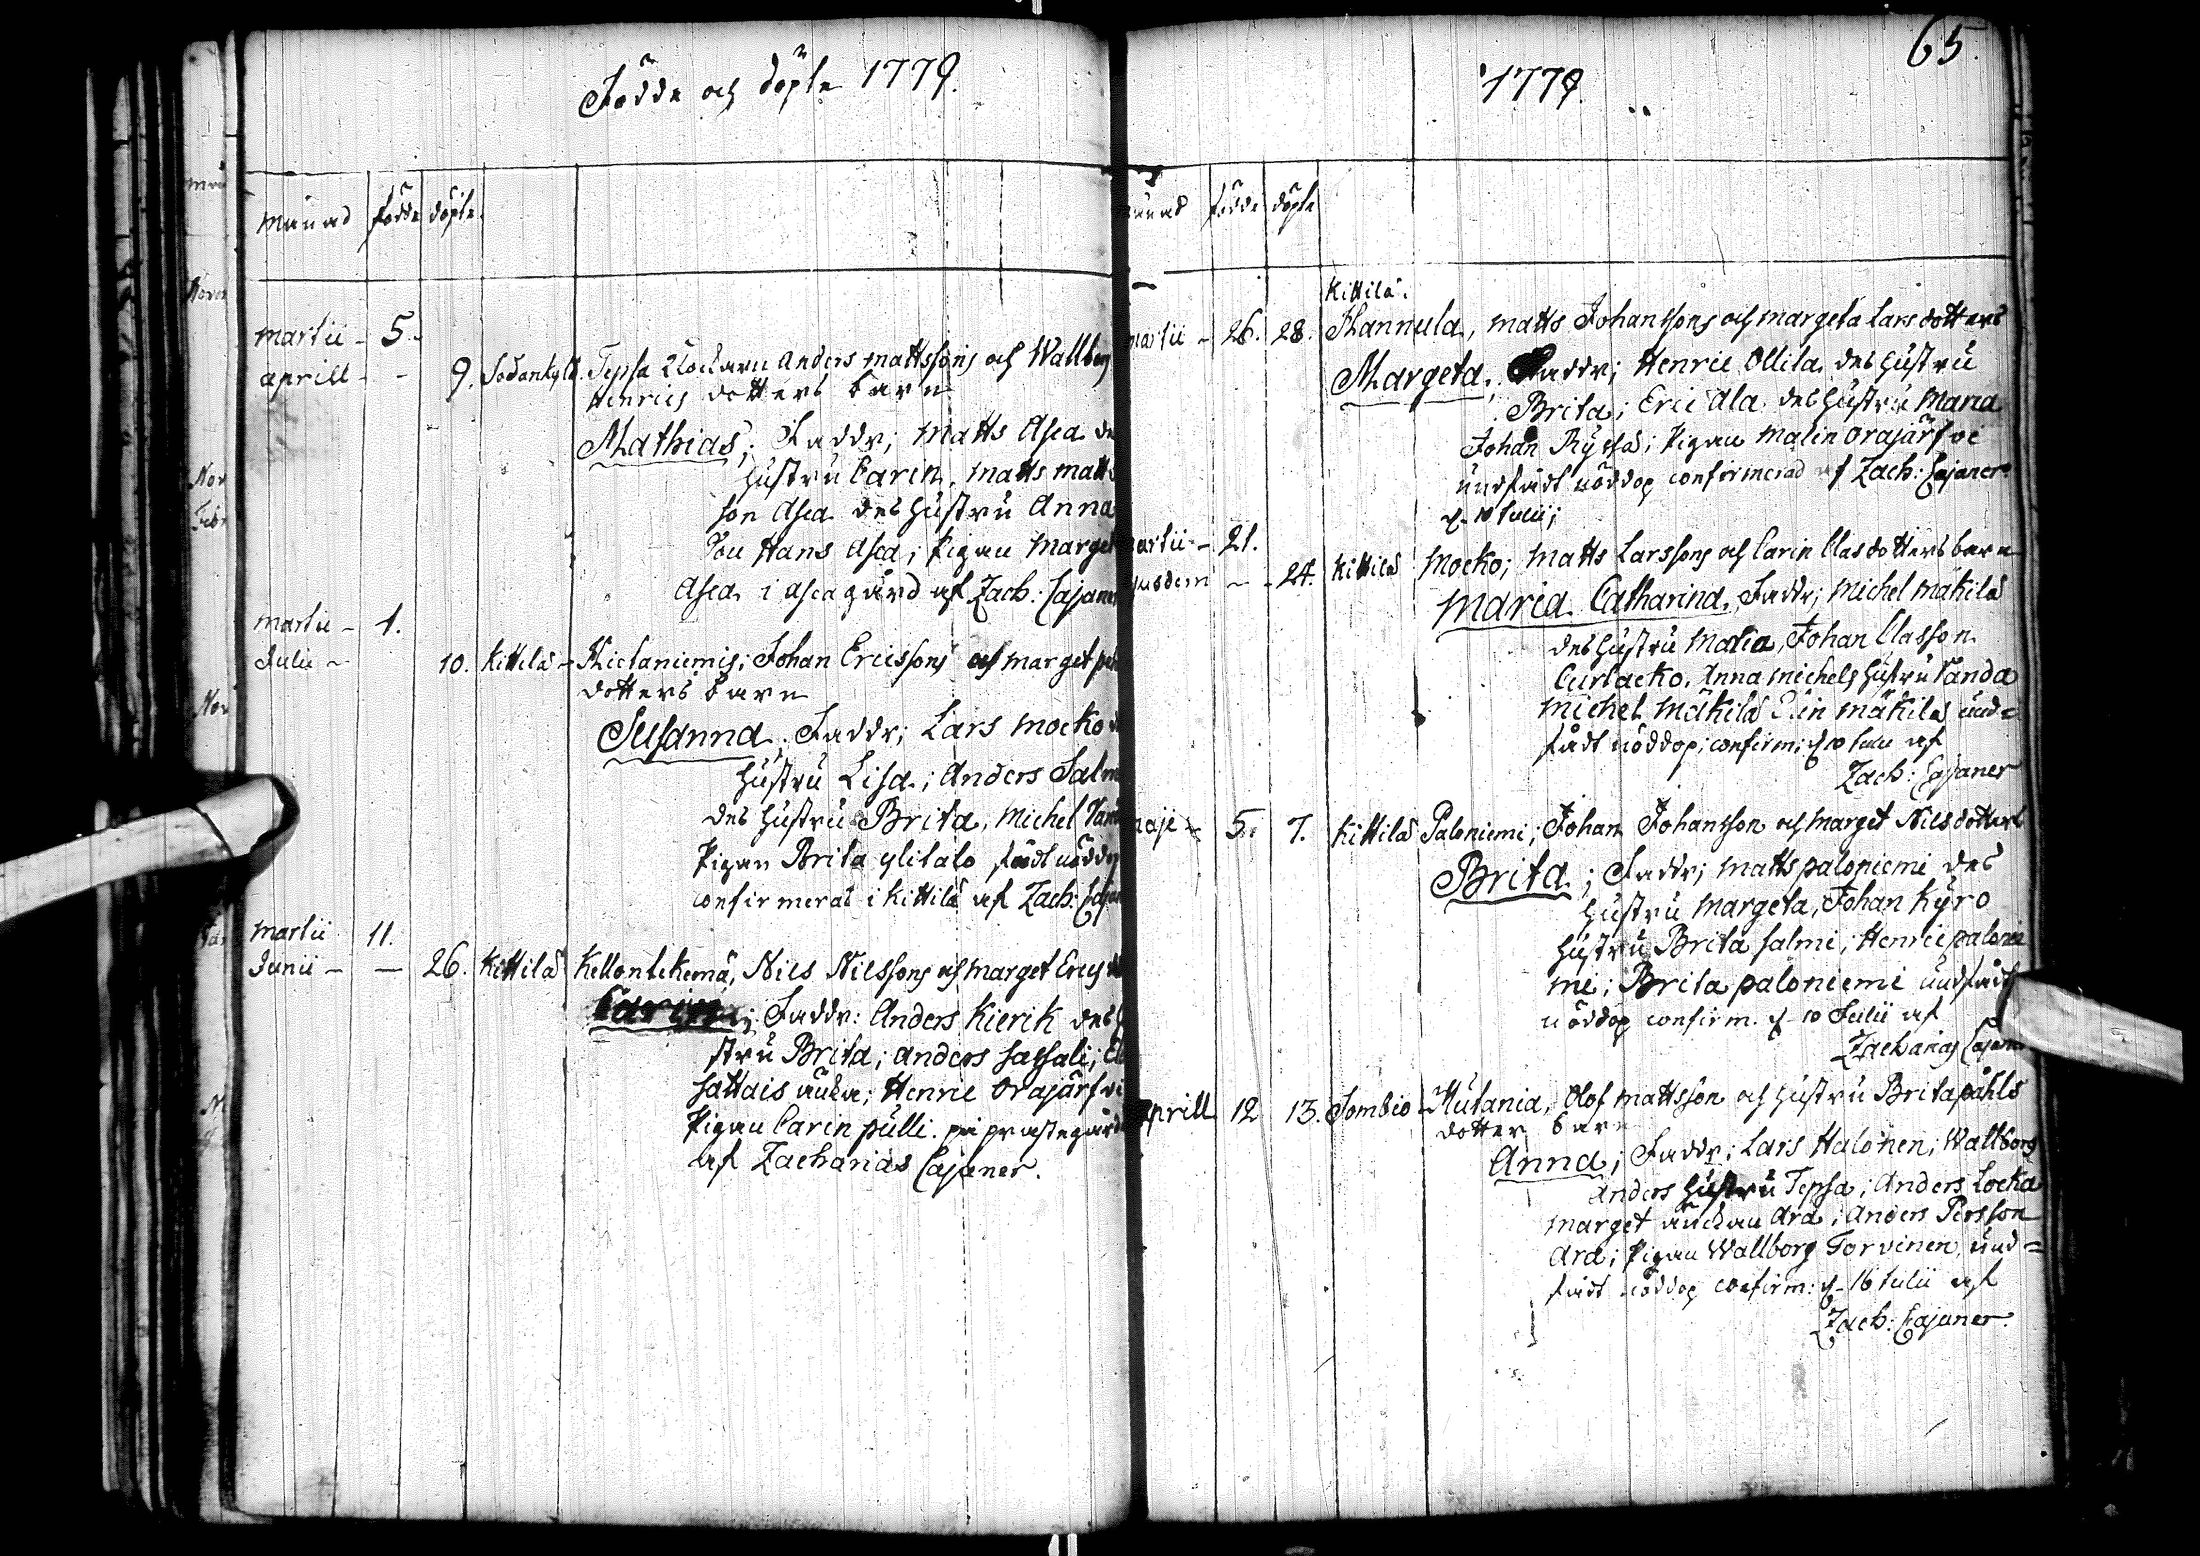 Födde och döpte 1779.
månad födde döpte.
martii - 5.
aprill - - 9. Sodankylä. Tepsa Anders mattssons och Wallborg
Henrics dotters barn
Mathias; Faddr; Matts Asca des
hustru Carin, matts matts
son Asca des hustru Anna
Hans Asca; Pigan Marget
Asca i Asca gård af Zach: Cajaner
martii - 1.
Julii - 10. Kittilä - Kietaniemis; Johan Ericssons och marget
dotters barn
Susanna; Faddr; Lars mocko
hustru Lisa; Anders Salmi
des hustru Brita, Michel
Pigan Brita ylitalo fådt nöddop
confirmerat i Kittilä af Zach: Cajaner
martii 11.
Junii - - 26. Kittilä Kellontekemä, Nils Nilssons och marget Erics
Carin; Faddr: Anders Kierik des
stru Brita; anders sassali;
sattais änka; Henric Orajärfvi
Pigan Carin pulli. på prästegården
af Zacharias Cajaner.
65.
1779.
månad födde döpte
Kittilä.
martii - 26. 28. Hannula, matts Johanssons och margeta Lars dotters
Margeta; Faddr; Henric Ollila des hustru
Brita; Eric Ala des hustru Maria
Johan Ryssa; Pigan Malin Orajärfvi
undfådt nöddop confirmerad af Zach: Cajaner
d. 10 Julii;
martii - 21.
ejusdem - - 24. Kittilä Mocko; matts Larssons och Carin Clasdotters barn
Maria Catharina. Faddr; Michel mäkilä
des hustru Maria, Johan Classon
Curtacko. Anna michels hustru Vanda
michel mäkilä Elin mäkilä und=
fådt nöddop; confirm; d 10 Julii af
Zach: Cajaner
maji - 5. 7. Kittilä Paloniemi; Johan Johansson och Marget Nilsdotters
Brita; Faddr; matts paloniemi des
hustru Margeta, Johan Kyrö
hustru Brita salmi; Henric paloni
mi; Brita paloniemi undfådt
nöddop confirm. d. 10 Julii af
Zacharias Cajaner
Aprill 12 13. Sombio - Mutania, Olof mattsson och hustru Brita påhls
dotter barn
Anna; Faddr; Lars Halonen; Wallborg
Anders hustru Tepsa; Anders Locka
marget änckan Ara; Anders Persson
Ara; Pigan Wallborg Torvinen, und=
fådt nöddop confirm: d. 16 Julii af
Zach: Cajaner.